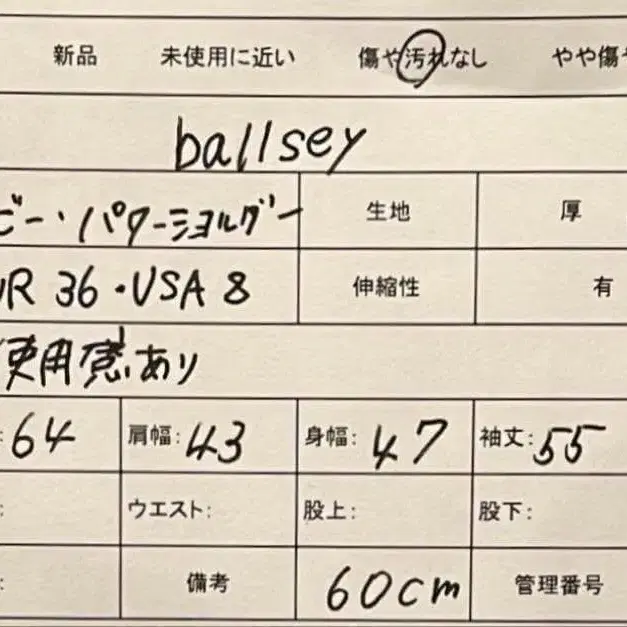 新品 未使用に近い 傷や汚れなし やや傷
ballsey
ビー・パワーショルダー 生地 厚
UR 36・USA 8 伸縮性 有
使用感あり
: 64 肩幅: 43 身幅: 47 袖丈: 55
: ウエスト: 股上: 股下:
: 備考 60cm 管理番号